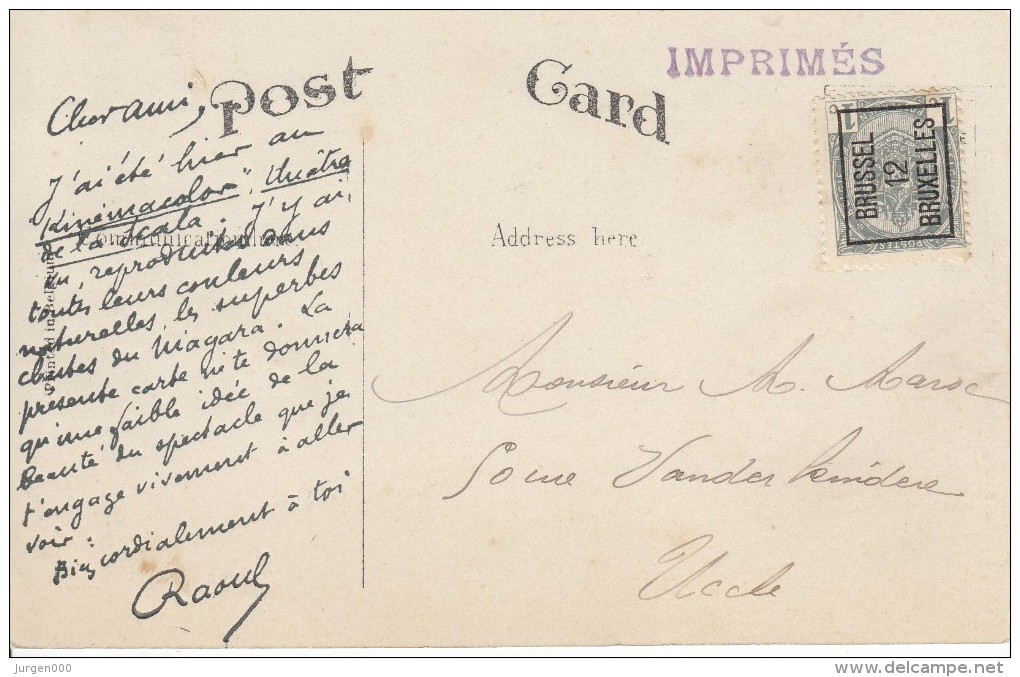 Post Card
IMPRIMÉS
BRUSSEL
12
BRUXELLES
1 1
POSTES
Communication
Address here
Printed in Belgium
Cher ami,
J'ai été hier au
"Kinémacolor", théâtre
de la Scala. J'y ai
vu, reproduites dans
toutes leurs couleurs
naturelles, les superbes
chutes du Niagara. La
présente carte ne te donnera
qu'une faible idée de la
beauté du spectacle que je
t'engage vivement à aller
voir.
Bien cordialement à toi
Raoul
Monsieur M. Maroc
50 rue Vanderkindere
Uccle
Jurgen000
www.delcampe.net